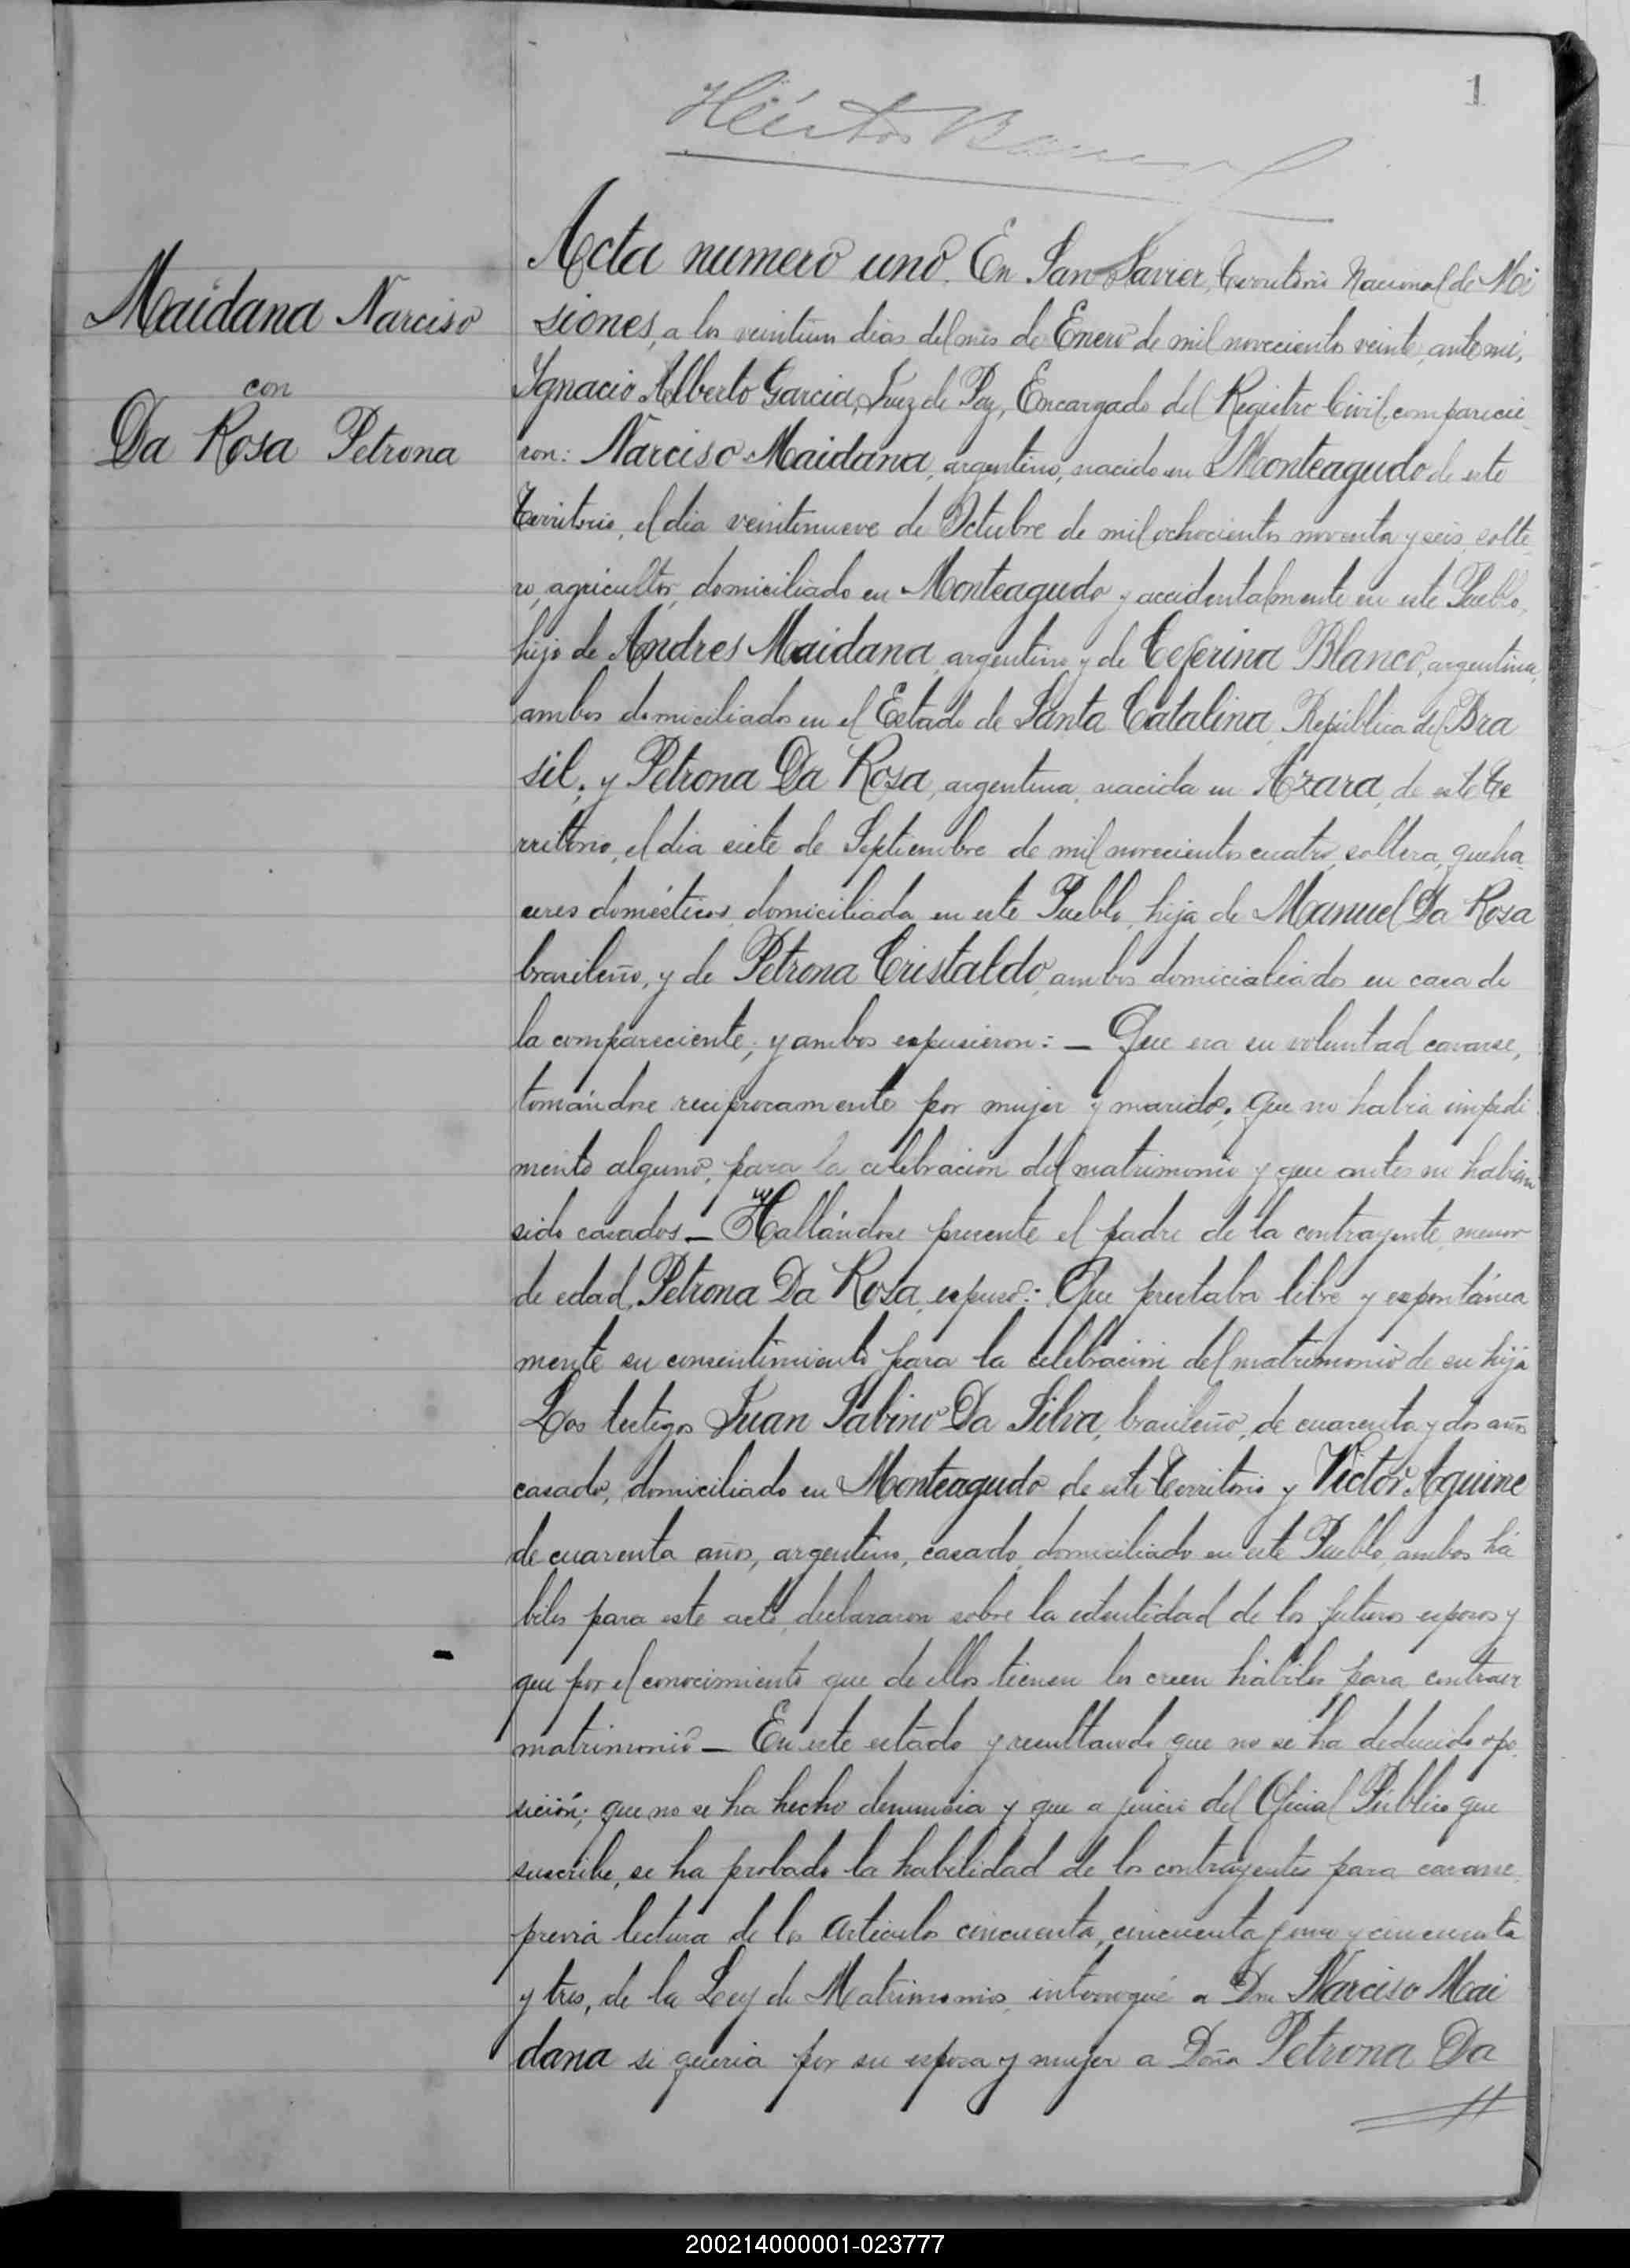 1
Héctor
Acta numero uno. En San Javier, Territorio Nacional de Mi
Maidana Narciso
con
Da Rosa Petrona
siones, a los veintiun dias del mes de Enero de mil novecientos veinte, ante mi,
Ignacio Alberto Garcia, Juez de Paz, Encargado del Registro Civil, comparecie
ron: Narciso Maidana, argentino, nacido en Monteagudo de este
Territorio, el dia veintinueve de Octubre de mil ochocientos noventa y seis, solte
ro, agricultor, domiciliado en Monteagudo y accidentalmente en este Pueblo,
hijo de Andres Maidana, argentino y de Ceferina Blanco, argentina,
ambos domiciliados en el Estado de Santa Catalina, República del Bra
sil; y Petrona Da Rosa, argentina, nacida en Azara, de este Te
rritorio, el dia siete de Septiembre de mil novecientos cuatro, soltera, queha
ceres domésticos, domiciliada en este Pueblo, hija de Manuel Da Rosa
brasileño, y de Petrona Cristaldo, ambos domicialiados en casa de
la compareciente; y ambos espusieron: — Que era su voluntad casarse,
tomándose reciprocamente por mujer y marido; que no habia impedi
mento alguno, para la celebracion del matrimonio y que antes no habian
sido casados — Hallándose presente el padre de la contrayente, menor
de edad, Petrona Da Rosa, espuso: Que prestaba libre y espontánea
mente su consentimiento para la celebracion del matrimonio de su hija
Los testigos Juan Sabino Da Silva, brasileño, de cuarenta y dos años
casado, domiciliado en Monteagudo de este Territorio y Victor Aguirre
de cuarenta años, argentino, casado, domiciliado en este Pueblo, ambos há
biles para este acto, declararon sobre la identidad de los futuros esposos y
que por el conocimiento que de ellos tienen los creen hábiles para contraer
matrimonio — En este estado y resultando que no se ha deducido opo
sición; que no se ha hecho denuncia y que a juicio del Oficial Público que
suscribe, se ha probado la habilidad de los contrayentes para casarse,
previa lectura de los Articulos cincuenta, cincuenta y uno y cincuenta
y tres, de la Ley de Matrimonio, interrogué a Don Narciso Mai
dana si queria por su esposa y mujer a Doña Petrona Da
200214000001-023777